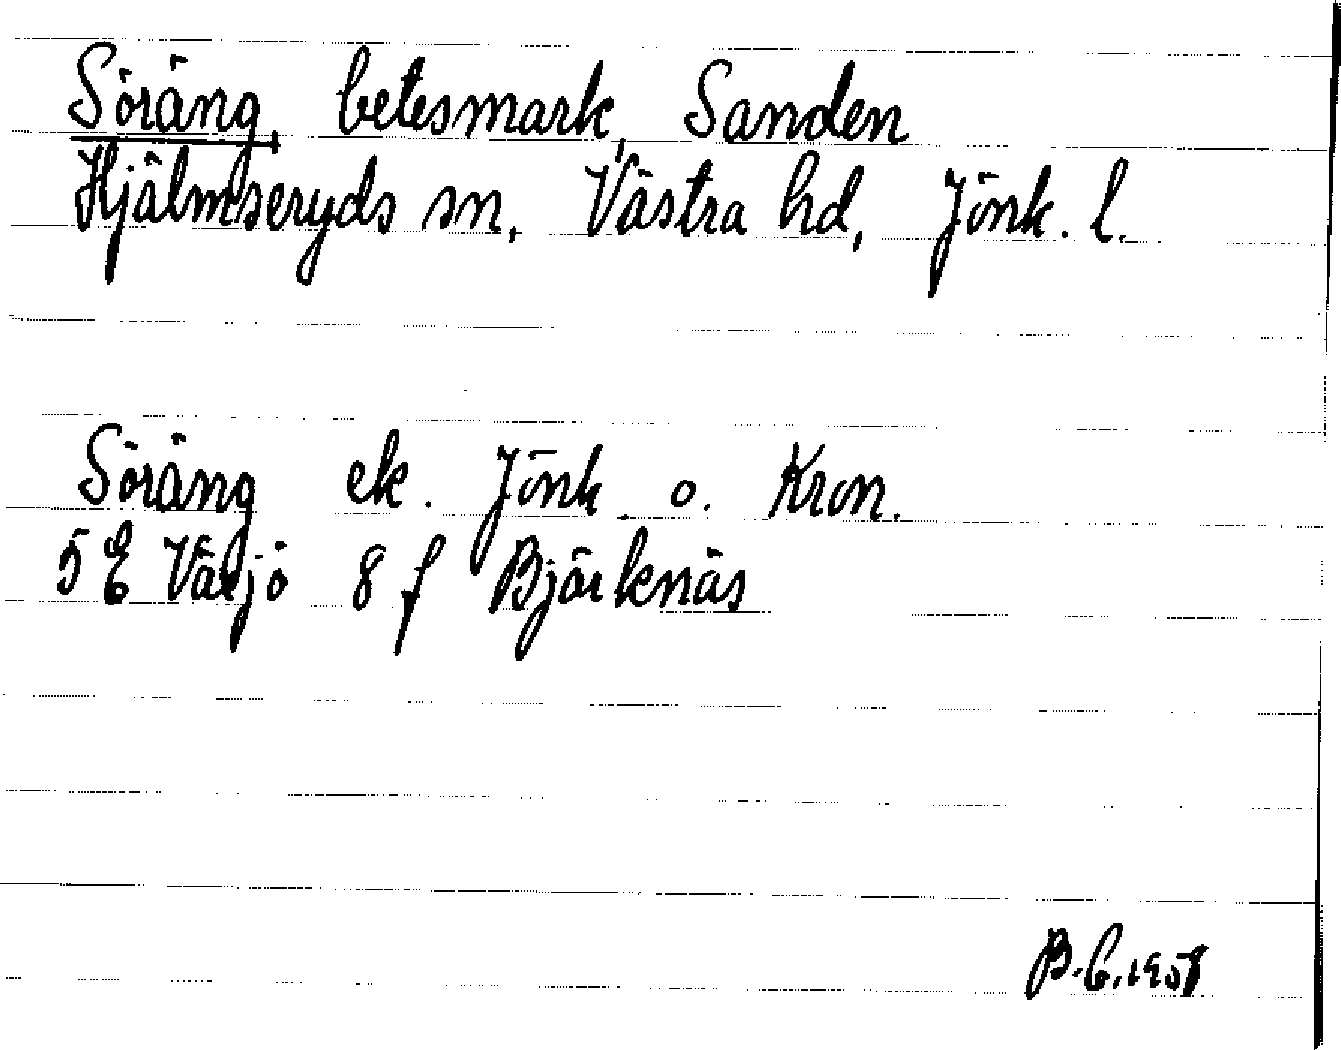 Söräng, betesmark, Sanden
Hjälmseryds sn, Västra hd, Jönk. l.
Söräng ek. Jönk. o. Kron.
5 E Växjö 8 f Björknäs
B.C. 1958